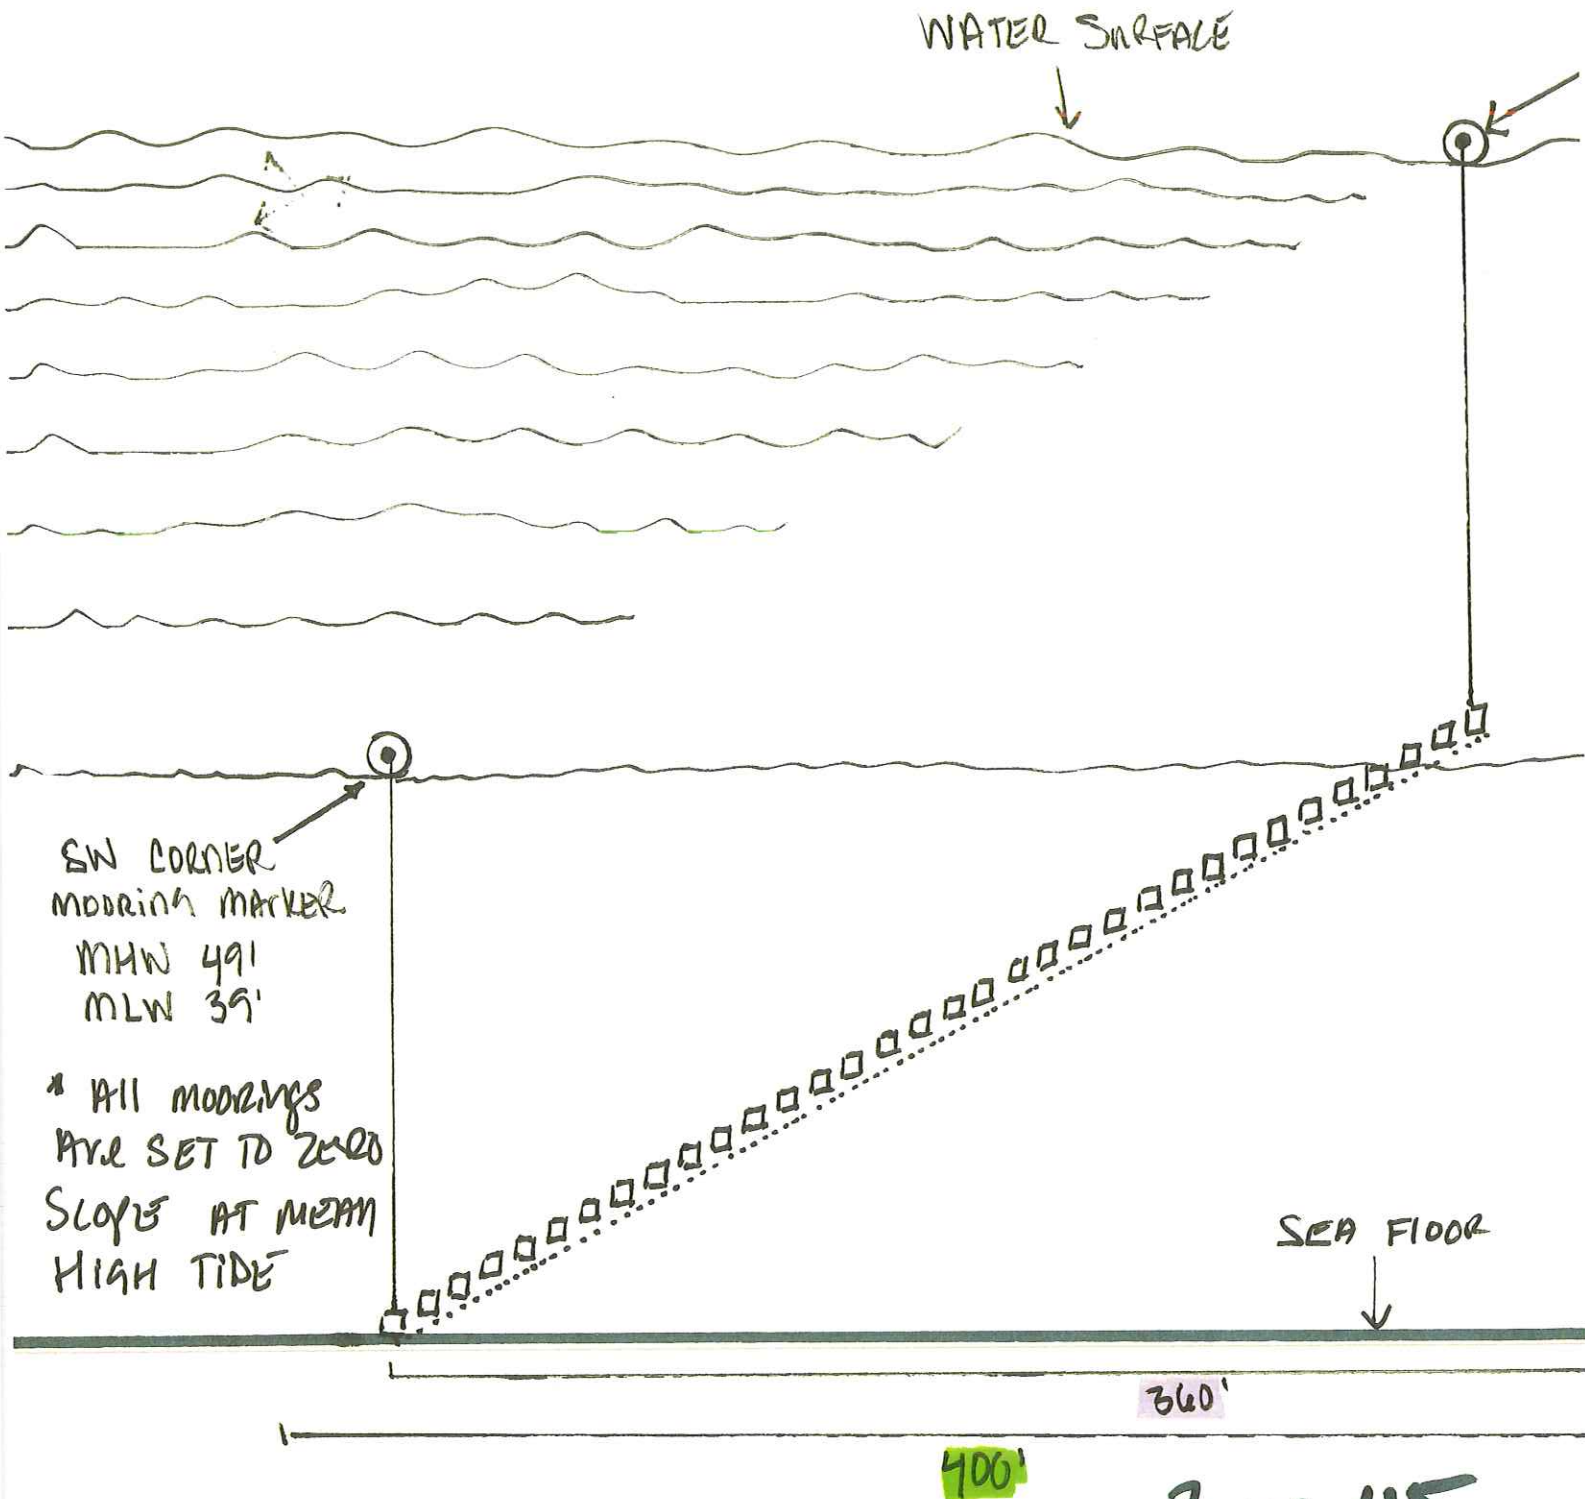 WATER SURFACE
SW CORNER
MOORING MARKER
MHW 49'
MLW 39'
* All MOORINGS
Are SET TO ZERO
SCOPE AT MEAN
HIGH TIDE
SEA FLOOR
360'
400'